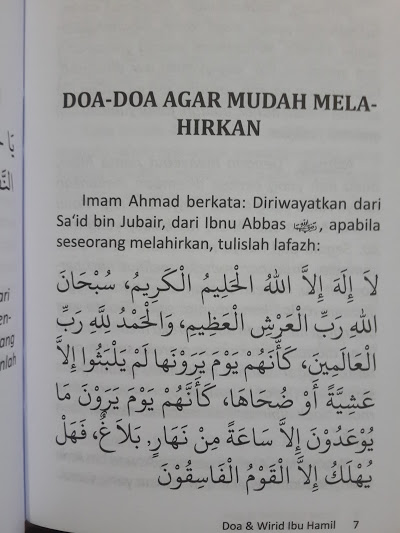 DOA-DOA AGAR MUDAH MELA-
HIRKAN
Imam Ahmad berkata: Diriwayatkan dari
Sa‘id bin Jubair, dari Ibnu Abbas ﷺ, apabila
seseorang melahirkan, tulislah lafazh:
لاَ إِلَهَ إِلاَّ اللهُ الْحَلِيمُ الْكَرِيمُ، سُبْحَانَ
اللهِ رَبِّ الْعَرْشِ الْعَظِيمِ، وَالْحَمْدُ لِلَّهِ رَبِّ
الْعَالَمِينَ، كَأَنَّهُمْ يَوْمَ يَرَوْنَهَا لَمْ يَلْبَثُوا إِلاَّ
عَشِيَّةً أَوْ ضُحَاهَا، كَأَنَّهُمْ يَوْمَ يَرَوْنَ مَا
يُوْعَدُوْنَ إِلاَّ سَاعَةً مِنْ نَهَارٍ, بَلاَغٌ، فَهَلْ
يُهْلَكُ إِلاَّ الْقَوْمُ الْفَاسِقُوْنَ
Doa & Wirid Ibu Hamil 7